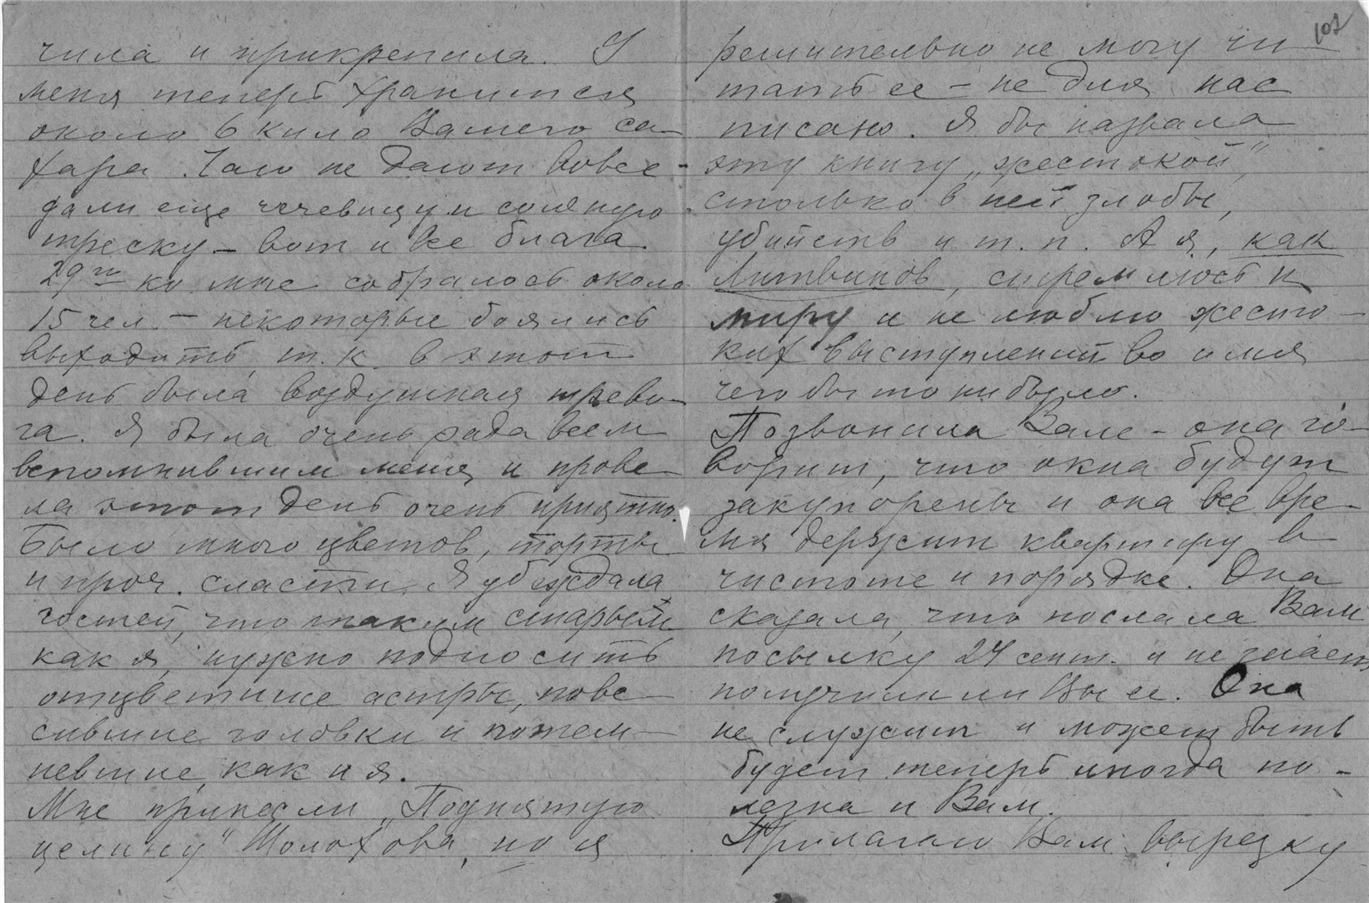 чила и прикрепила. У
меня теперь хранится
около 6 кило Вашего са-
хара. Чаю не дают вовсе -
дали еще чечевицу и соленую
треску - вот и все блага.
29го ко мне собралось около
15 чел. - некоторые боялись
выходить, т.к. в этот
день была воздушная трево-
га. Я была очень рада всем
вспомнившим меня и прове-
ла этот день очень приятно.
Было много цветов, торты
и проч. сласти. Я убеждала
гостей, что таким старым
как я, нужно подносить
отцветшие астры, пове-
сившие головки и потем-
невшие, как и я.
Мне принесли „Поднятую
целину" Шолохова, но я
102
решительно не могу чи-
тать ее - не для нас
писано. Я бы назвала
эту книгу „жестокой",
столько в ней злобы,
убийств и т.п. А я, как
Литвинов, стремлюсь к
миру и не люблю жесто-
ких выступлений во имя
чего бы то ни было.
Позвонила Вале - она го-
ворит, что окна будут
закупорены и она все вре-
мя держит квартиру в
чистоте и порядке. Она
сказала, что послала Вам
посылку 24 сент. и не знает
получили ли Вы ее. Она
не служит и может быть
будет теперь иногда по-
лезна и Вам.
Прилагаю Вам вырезку